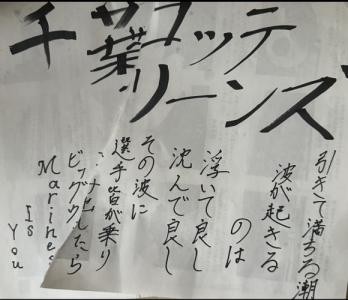 千葉ロッテ
リーンズ
引きて満ちる潮
波が起きる
のは
浮いて良し
沈んで良し
その波に
選手皆が乗り
ビッグ
したら
Marines
Is
You